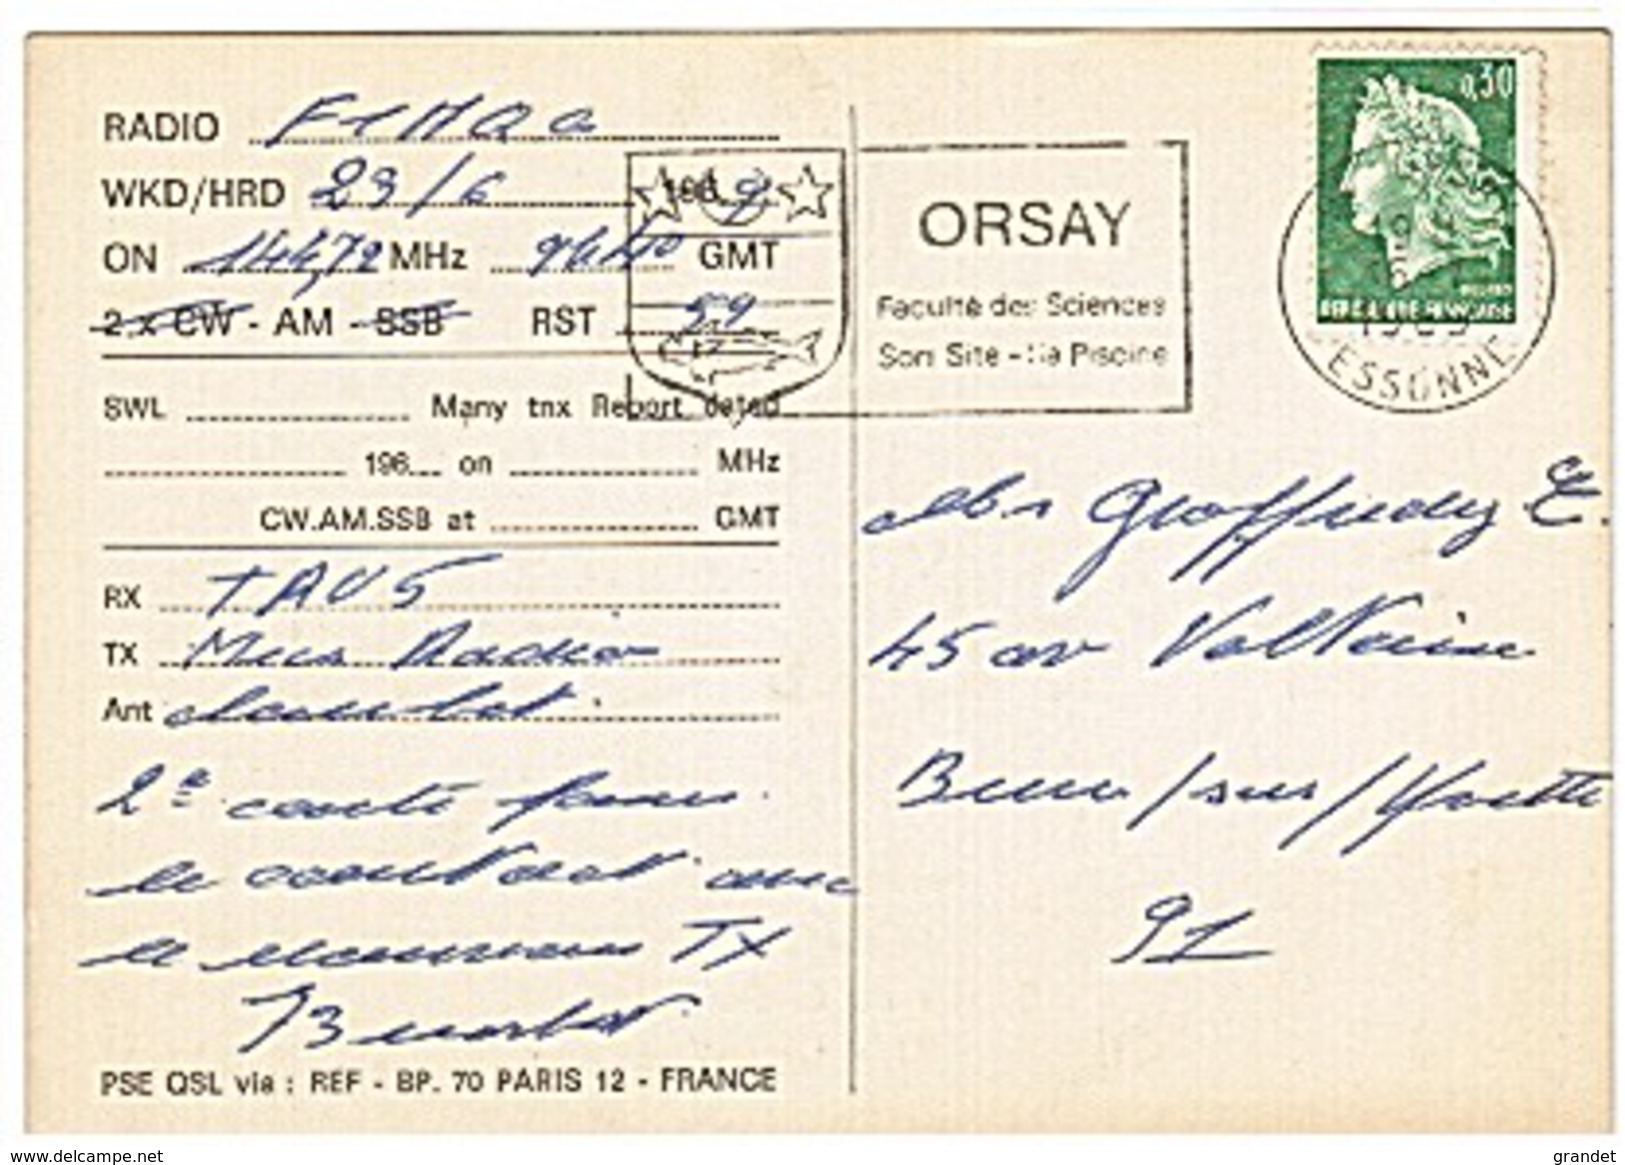 RADIO F1MQO
WKD/HRD 23/6 1969
ON 144,72 MHz 9h40 GMT
2 x CW - AM - SSB RST 59
SWL Many tnx Report dated
196 on MHz
CW.AM.SSB at GMT
RX TAV5
TX Mics Radio
Ant
2e carte pour
le contact avec
le nouveau TX
PSE QSL via : REF - BP. 70 PARIS 12 - FRANCE
ORSAY
Faculté des Sciences
Son Site - Sa Piscine
0,30
REPUBLIQUE FRANÇAISE
1969
ESSONNE
Mr Geoffredy E.
45 av Voltaire
Bures/sur/Yvette
91
www.delcampe.net
grandet